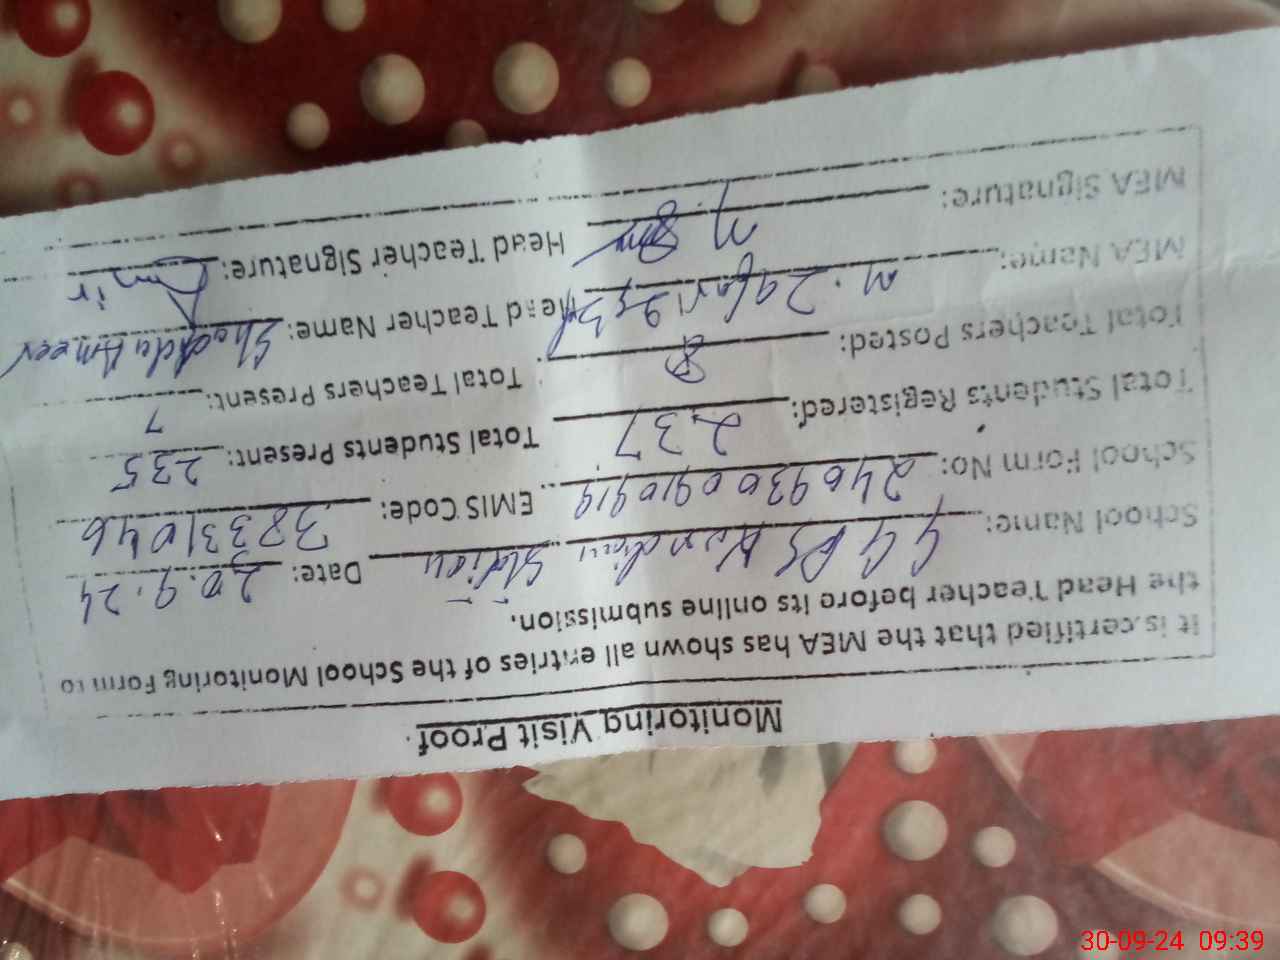 Monitoring Visit Proof
It is certified that the MEA has shown all entries of the School Monitoring Form to
the Head Teacher before its online submission.
School Name: GGPS Station Date: 30.9.24
School Form No: 240930091919 EMIS Code: 38331046
Total Students Registered: 237 Total Students Present: 235
Total Teachers Posted: 8 Total Teachers Present: 7
MEA Name: M. Head Teacher Name: Ameer
MEA Signature: Head Teacher Signature: Amir
30-09-24 09:39